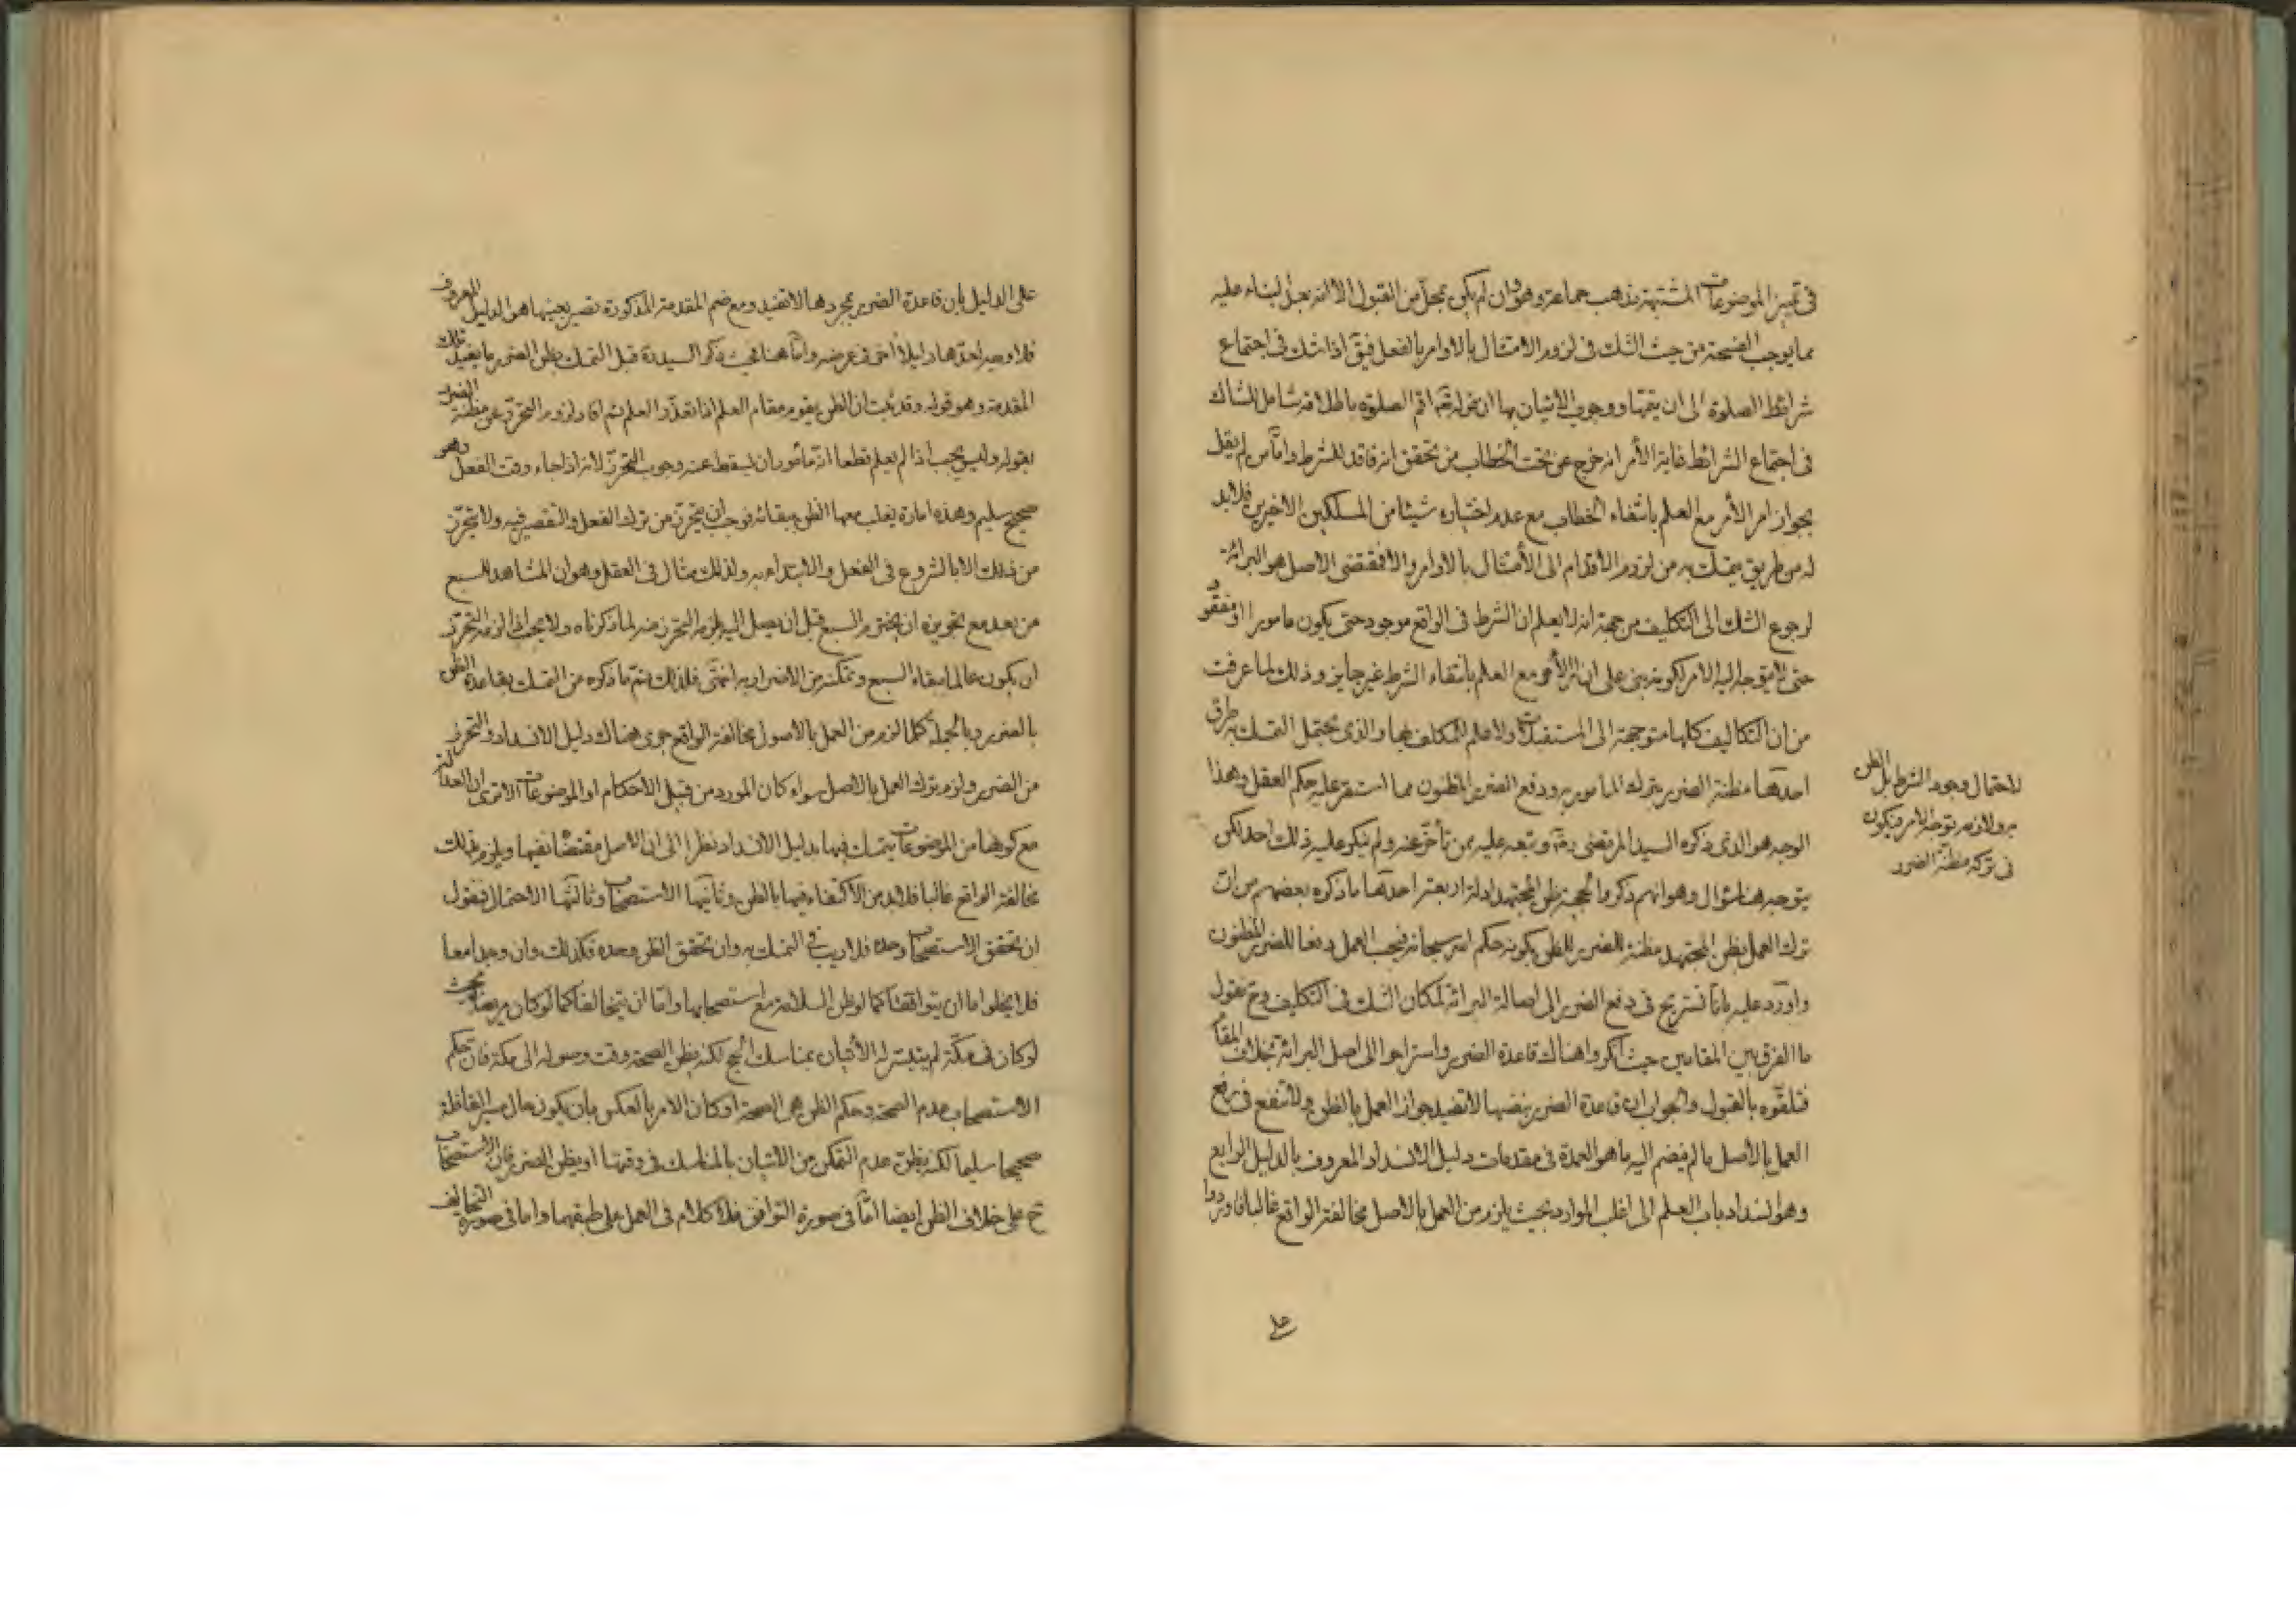 في تميز الموضوعات المشتبهة مذهب جماعة وهو وان لم يكن بمحل من القبول الا انه بعد البناء عليه
مما يوجب الصحة من حيث الشك في لزوم الامتثال بالاوامر بالفعل فيق اذا شك في اجتماع
شرائط الصلوة الى ان يقتها ووجوب الاتيان بها ان قوله تعـ اقم الصلوة باطلاقه شامل للشاك
في اجتماع الشرائط غاية الأمر انه خرج عن تحت الخطاب من تحقق انه فاقد للشرط واما من لم يقل
بجواز امر الأمر مع العلم بانتفاء الخطاب مع عدم اختياره شيئا من المسلكين الاخيرين فلا بد
له من طريق يتمسك به من لزوم الاقدام الى الأمتثال بالاوامر والا فمقتضى الاصل هو البرائة
لرجوع الشك الى التكليف من جهة انه لا يعلم ان الشرط في الواقع موجود حتى يكون مامورا او مفقود
حتى لا يتوجه اليه الامر لكونه بنى على ان امر الأمر مع العلم بانتفاء الشرط غير جايز وذلك لما عرفت
من ان التكاليف كلها متوجهة الى المستقبلات ولا علم للمكلف بها والذي يحتمل التمسك به طرق
احدها مظنة الضرر بترك المامور به ودفع الضرر المظنون مما استقر عليه حكم العقل وهذا
الوجه هو الذي ذكره السيد المرتضى ره وتبعه عليه من تأخر عنه ولم ينكر عليه ذلك احد لكن
يتوجه هنا سؤال وهو انهم ذكروا لحجية ظن المجتهد ادلة اربعة احدها ما ذكره بعضهم من ان
ترك العمل بظن المجتهد مظنة للضرر للظن بكونه حكم الله سبحانه فيجب العمل دفعا للضرر المظنون
واورد عليه بانا نستريح في دفع الضرر الى اصالة البرائة لمكان الشك في التكليف وح نقول
ما الفرق بين المقامين حيث انكروا هناك قاعدة الضرر واستراحوا الى اصل البرائة بخلاف المقام
فتلقوه بالقبول والجواب ان قاعدة الضرر بنفسها لا تفيد جواز العمل بالظن ولا تنفع في رفع
العمل بالاصل ما لم ينضم اليه ما هو العمدة في مقدمات دليل الانسداد المعروف بالدليل الرابع
وهو انسداد باب العلم الى اغلب الموارد بحيث يلزم من العمل بالاصل مخالفة الواقع غالبا فاوردوا
لاحتمال وجود الشرط بل الظن
به ولازمه توجه الامر فيكون
في تركه مظنة الضرر
على
على الدليل بان قاعدة الضرر بمجردها لا تفيد ومع ضم المقدمة المذكورة تصير بعينها هو الدليل المعروف
فلا وجه لعدها دليلا اخر في عرضه واما هنا فحيث ذكر السيد ره قبل التمسك بظن الضرر ما يفيد تلك
المقدمة وهو قوله وقد ثبت ان الظن يقوم مقام العلم اذا تعذر العلم ثم افاد لزوم التحرز عن مظنة الضرر
بقوله وليس يجب اذا لم يعلم قطعا انه مأمور ان يسقط عنه وجوب التحرز لأنه اذا جاء وقت الفعل وهو
صحيح سليم وهذه امارة يغلب معها الظن ببقائه فوجب ان يتحرز من ترك الفعل والتقصير فيه ولا يتحرز
من ذلك الا بالشروع في الفعل والابتداء به ولذلك مثال في العقل وهو ان المشاهد للسبع
من بعد مع تجويزه ان يخترم السبع قبل ان يصل اليه يلزمه التحرز منه لما ذكرناه ولا يجب اذا لزمه التحرز
ان يكون عالما ببقاء السبع وتمكنه من الاضرار به انتهى فلذلك يتم ما ذكره من التمسك بقاعدة الظن
بالضرر وبالجملة كلما لزم من العمل بالأصول مخالفة الواقع جرى هناك دليل الانسداد والتحرز
من الضرر ولزم ترك العمل بالاصل سواء كان المورد من قبيل الاحكام او الموضوعات الا ترى ان العدالة
مع كونها من الموضوعات يتمسك فيها بدليل الانسداد نظرا الى ان الاصل مقتض نفيها ويلزم بذلك
مخالفة الواقع غالبا فلا بد من الاكتفاء فيها بالظن وثانيها الاستصحاب وثالثها الاحتمال فنقول
ان تحقق الاستصحاب وحده فلا ريب في التمسك به وان تحقق الظن وحده فكذلك وان وجدا معا
فلا يخلوا اما ان يتوافقا كما لو ظن السلامة مع استصحابها واما ان يتخالفا كما لو كان مريضا بحيث
لو كان في مكة لم يتيسر له الأتيان بمناسك الحج لكنه يظن الصحة وقت وصوله الى مكة فان حكم
الاستصحاب عدم الصحة وحكم الظن هي الصحة او كان الامر بالعكس بان يكون حال سير القافلة
صحيحا سليما لكنه يظن عدم التمكن من الاتيان بالمناسك في وقتها او يظن الضرر فان الاستصحاب
ح على خلاف الظن ايضا اما في صورة التوافق فلا كلام في العمل على طبقهما واما في صورة التخالف